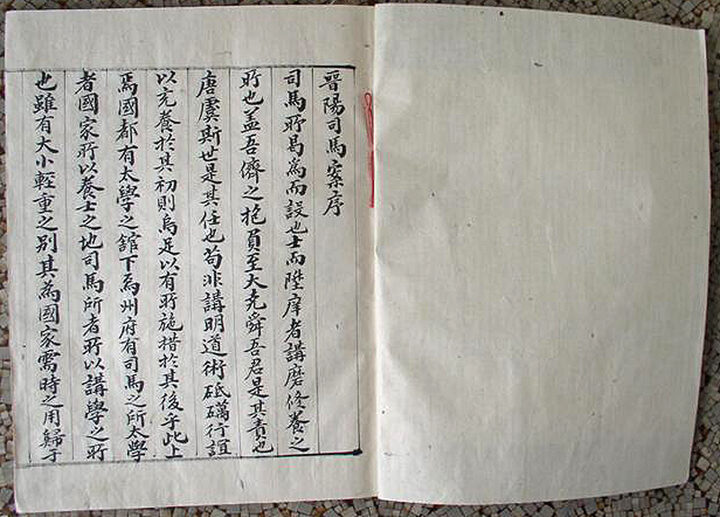 晋陽司馬案序
司馬所曷為而設也士而陞庠者講磨修養之
所也盖吾儕之抱負至大克舜吾君是其責也
唐虞斯世是其任也苟非講明道術砥礪行誼
以充養於其初則烏足以有所施措於其後乎此上
焉國都有太學之舘下焉州府有司馬之所太學
者國家所以養士之地司馬所者所以講學之所
也雖有大小輕重之別其為國家需時之用歸于